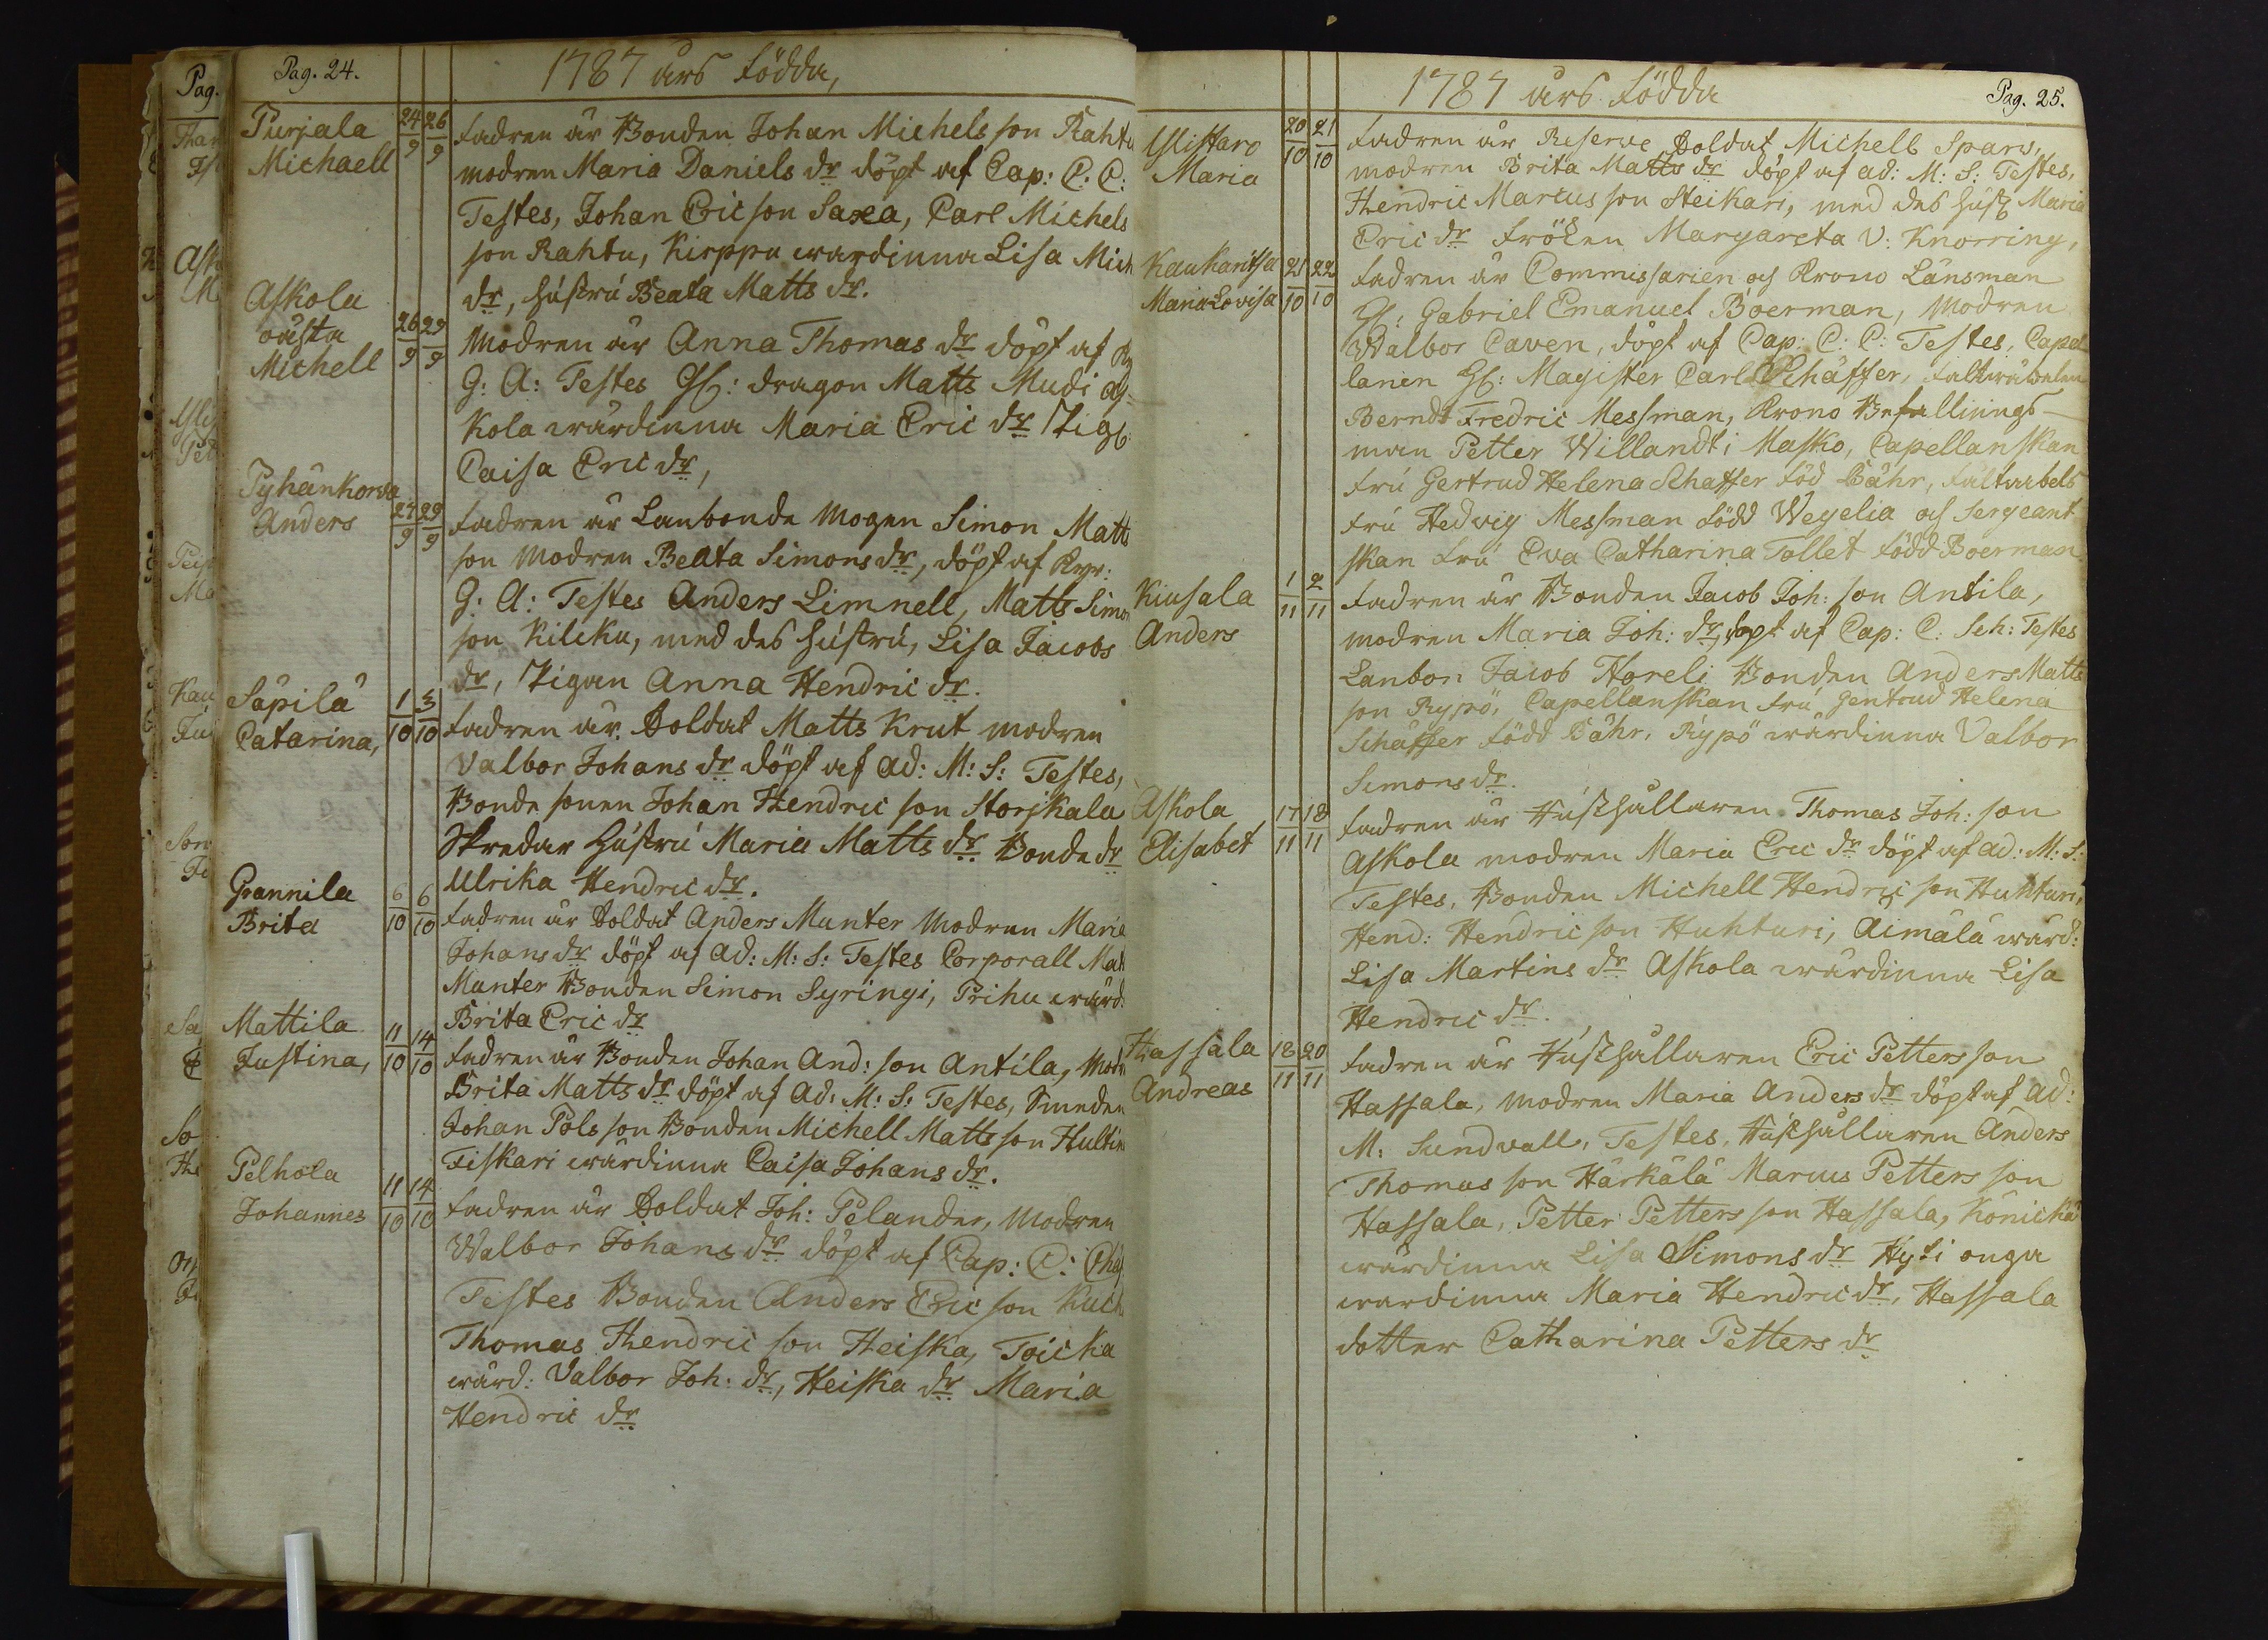 Pag. 24.
1787 års födda,
Purjala
Michaell
24/9 26/9
fadren är Bonden Johan Michels son Raht
modren Maria Daniels dr döpt af Cap: C: C:
Testes, Johan Ericson Saxa, Carl Michels
son Rahtu, Kirppu wardinna Lisa Mich
dr, hústrú Beata Matts dr.
Askola
ousta
Michell
26/9 29/9
Modren är Anna Thomas dr döpt af
G: A: Testes dragon Matts Mudi As
kola wärdinna Maria Eric dr Pig:
Caisa Eric dr,
Pyhänkorva
Anders
27/9 29/9
fadren är Lanbonde Mogen Simon Matts
son Modren Beata Simons dr, döpt af
G: A: Testes Anders Limnell, Matts Simo
son Kilcku, med des hústrú, Lisa Jacobs
dr, Pigan Anna Hendric dr.
Säpilä
Catarina,
1/10 3/10
fadren är Soldat Matts Krut modren
Valbor Johans dr döpt af ad: M: S: Testes,
Bonde sonen Johan Hendric son Storjkala
Skredar Hústrú Maria Matts dr Bonde dr
Ulrika Hendric dr.
Grannila
Brita
6/10 6/10
fadren är Soldat Anders Munter Modren Maria
Johans dr döpt af ad: M: S: Testes Corporall Mat
Munter Bonden Simon Syringi, Prihu wärd:
Brita Eric dr
Mattila
Justina,
11/10 14/10
fadren är Bonden Johan And: son Antila, Modr
Brita Matts dr döpt af Ad: M: S: Testes, Smeden
Johan Pols son Bonden Michell Matts son Hultin
Fiskari wärdinna Caisa Johans dr.
Pelhola
Johannes
11/10 14/10
fadren är Soldat Joh: Pelander, Modren
Walbor Johans dr döpt af Cap: C:
Testes Bonden Anders Eric son
Thomas Hendric son Heiska, Toicka
wärd: Valbor Joh: dr, Heiska dr Maria
Hendric dr
1787 års födda
Pag. 25.
Ylistaro
Maria
20/10 21/10
fadren är Reserve Soldat Michell Spars,
modren Brita Matts dr döpt af ad: M: S: Testes,
Hendric Marcus son Heikari, med des hust Maria
Eric dr fröken Margareta V: Knorring,
Kaukaritsa
Maria Lovisa
21/10 22/10
fadren är Commissarien och Krono Länsman
Gabriel Emanuel Boerman, modren
Walbor Caven, döpt af Cap: C: C: Testes, Capel
lanen Magister Carl Schäffer, fältwäbelen
Berndt Fredric Messman, Krono Befallnings-
man Petter Willandt, Masko, Capellanskan
frú Gertrud Helena Schaffer föd Bähr, fältwäbels
frú Hedvig Messman född Wegelia och Sergeant
skan frú Eva Catharina Tollet född Boerman
Kiusala
Anders
1/11 2/11
fadren är Bonden Jacob Joh: son Antila,
modren Maria Joh: dr, döpt af Cap: C: Sch: Testes
Lanbon Jacob Horeli Bonden Anders Matts
son Rypö, Capellanskan frú Gertrud Helena
Schäffer född Bähr, Rypö wärdinna Valbor
Simons dr.
Askola
Elisabet
17/11 18/11
fadren är Hushållaren Thomas Joh: son
Askola modren Maria Eric dr döpt af ad: M: S:
Testes, Bonden Michell Hendric son Huhturi,
Hend: Hendric son Huhturi, Aimälä wärd:
Lisa Martins dr Askola wärdinna Lisa
Hendric dr.
Hassala
Andreas
18/11 20/11
fadren är Hushållaren Eric Petters son
Hassala, modren Maria Anders dr döpt af ad:
M: Sundvall, Testes, Hushållaren Anders
Thomas son Härkälä Marcus Petters son
Hassala, Petter Petters son Hassala, Könickä
wärdinna Lisa Simons dr Hyti onga
wardinna Maria Hendric dr, Hassala
dotter Catharina Petters dr